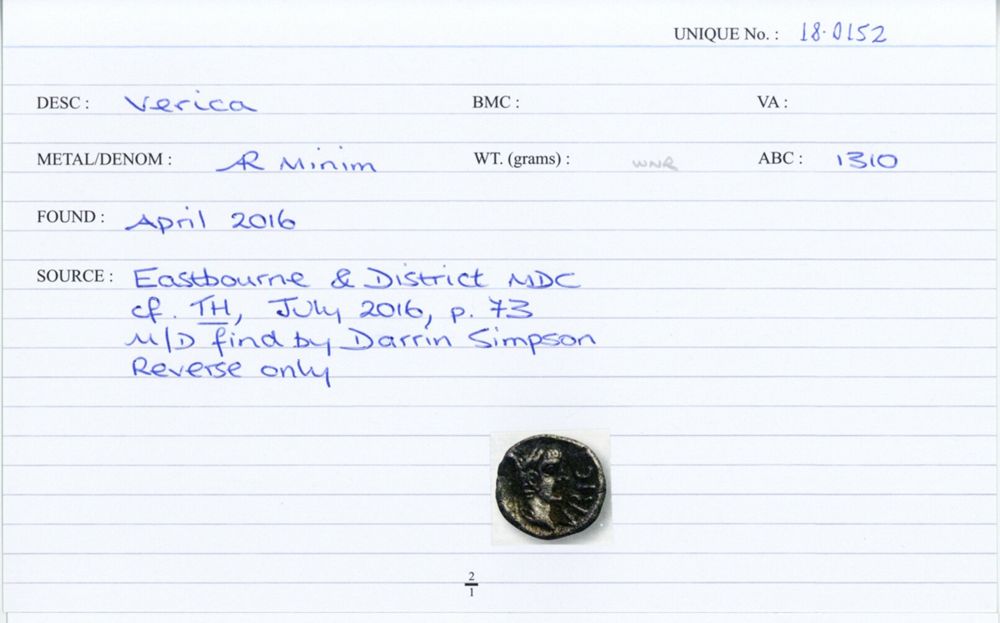 UNIQUE No. : 18.0152
DESC : Verica BMC : VA :
METAL/DENOM : AR Minim WT. (grams) : WNR ABC : 1310
FOUND : April 2016
SOURCE : Eastbourne & District MDC
cf. TH, July 2016, p. 73
M/D find by Darrin Simpson
Reverse only
2
1